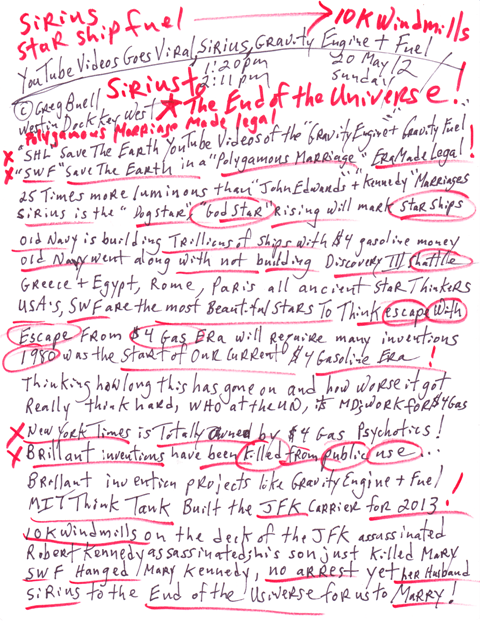 Sirius
Star Ship Fuel → 10K Windmills
YouTube Videos Goes Viral, Sirius, Gravity Engine + Fuel
1:20pm 20 May 12
2:11pm Sunday
Sirius to
© Greg Buell
Westin Dock Key West ★ The End of the Universe!
Polygamous Marriage Made legal
x "SHL Save The Earth YouTube Videos of the "Gravity Engine + Gravity Fuel
x "SWF" Save The Earth in a "Polygamous Marriage" Era Made Legal!
25 Times more luminous than "John Edwards" + Kennedy" Marriages
Sirius is the "Dogstar", "God Star" Rising will mark Star Ships
Old Navy is building Trillions of Ships with $4 gasoline money
Old Navy went along with not building Discovery III Shattle
Greece + Egypt, Rome, Paris all ancient Star Thinkers
USA's, SWF are the most Beautiful Stars To Think escape with
Escape From $4 Gas Era will require many inventions
1980 was the start of our current $4 Gasoline Era!
Thinking how long this has gone on and how worse it got
Really think hard, WHO at the UN, its MD's work for $4 Gas
x New York Times is Totally owned by $4 Gas Psychotics!
x Brillant inventions have been killed from public use...
Brillant invention projects like Gravity Engine + Fuel
MIT Think Tank Built the JFK Carrier for 2013!
10K Windmills on the deck of the JFK assassinated
Robert Kennedy assassinated, his son just killed Mary
SWF Hanged Mary Kennedy, no arrest yet her Husband
Sirius to the End of the Universe for us to Marry!